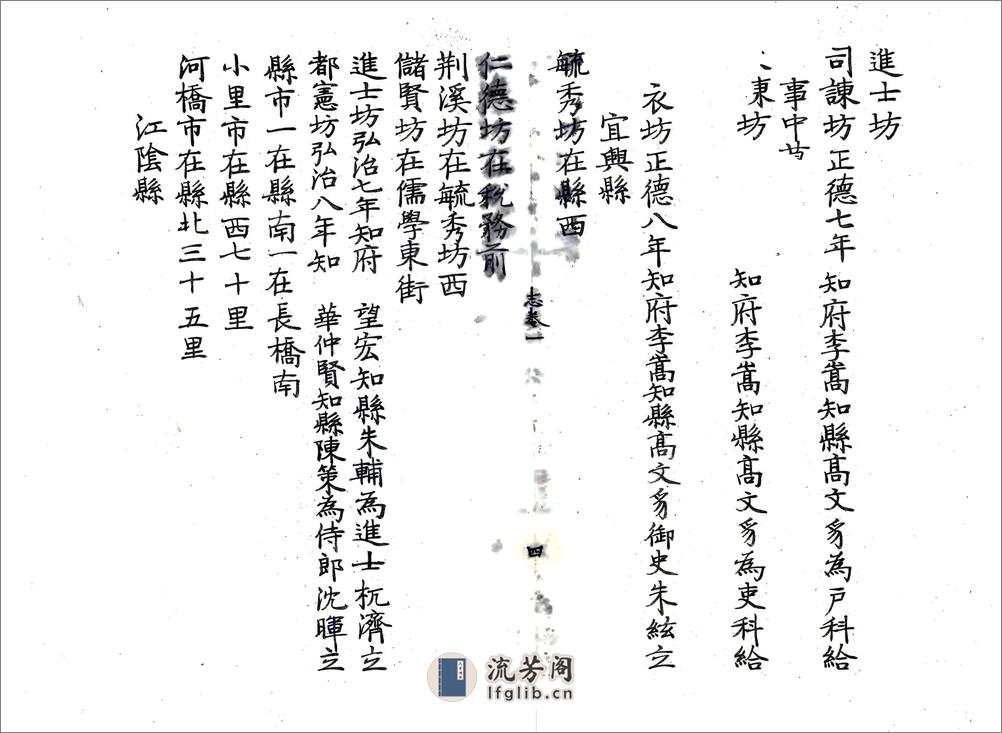 進士坊
司諫坊正德七年 知府李嵩知縣高文豸為戸科給
事中
東坊 知府李嵩知縣高文豸為吏科給
衣坊正德八年知府李嵩知縣高文豸御史朱絃立
宜興縣
毓秀坊在縣西
志卷一
四
仁德坊在税務前
荆溪坊在毓秀坊西
儲賢坊在儒學東街
進士坊弘治七年知府 望宏知縣朱輔為進士杭濟立
都憲坊弘治八年知 華仲賢知縣陳策為侍郎沈暉立
縣市一在縣南一在長橋南
小里市在縣西七十里
河橋市在縣北三十五里
江陰縣
流芳阁
lfglib.cn